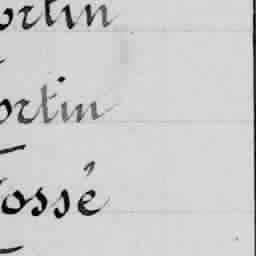 ortin
ortin
ossé